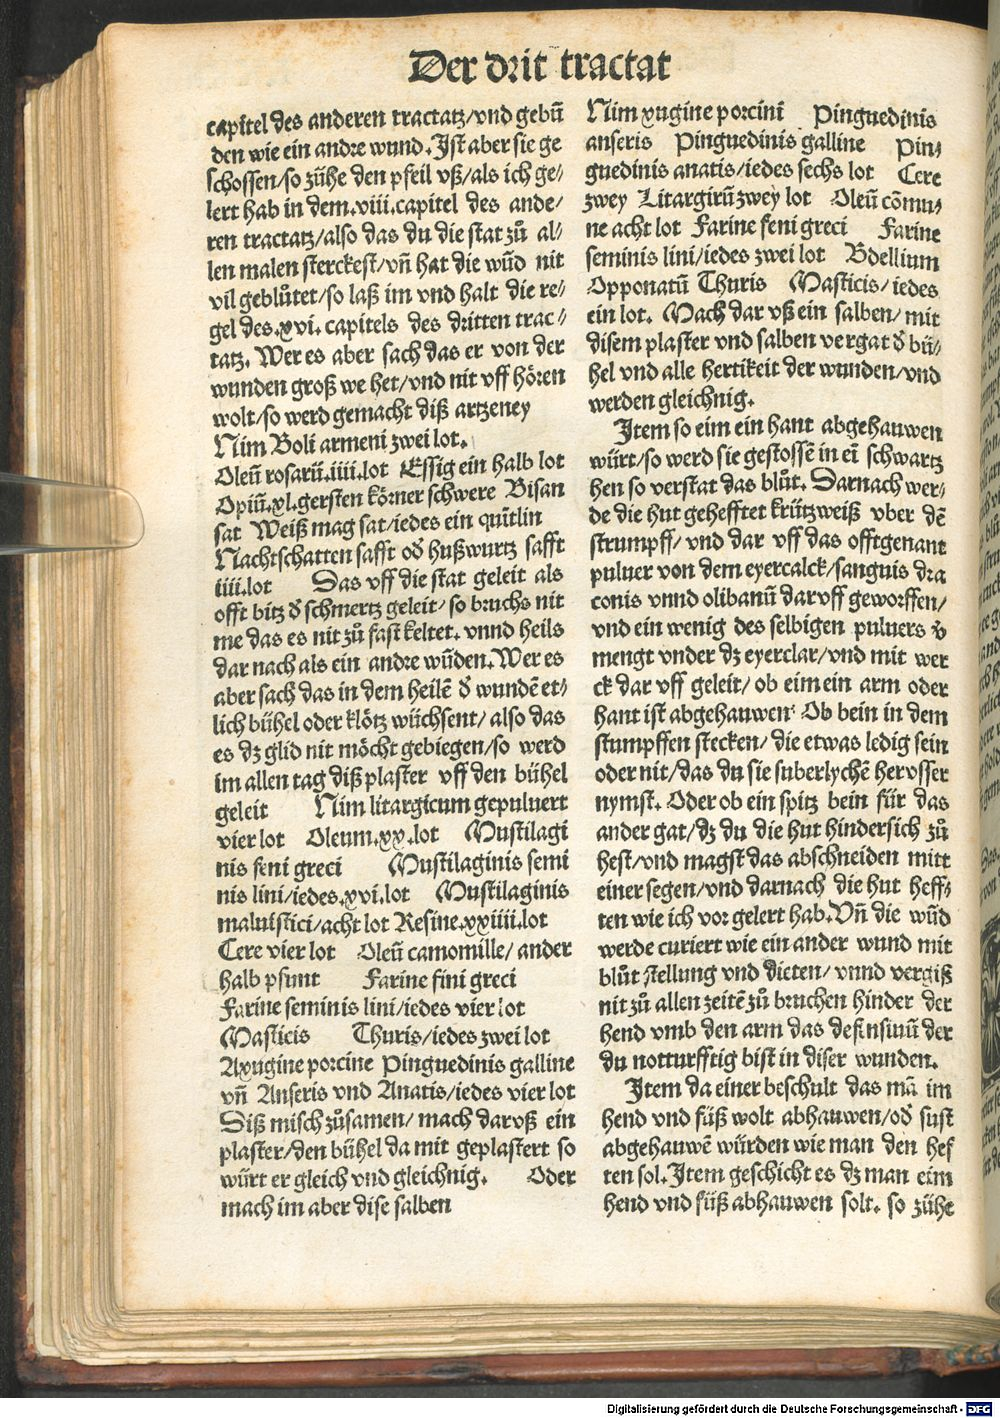 Der drit tractat
capitel des anderen tractatz/vnd gebũ
den wie ein andre wund. Jst aber sie ge
schossen/so zühe den pfeil vß/als ich ge⸗
lert hab in dem.viii.capitel des ande⸗
ren tractatz/also das du die stat zů al⸗
len malen sterckest/vñ hat die wũd nit
vil geblůtet/so laß im vnd halt die re⸗
gel des.xvi.capitels des dritten trac⸗
tatz. Wer es aber sach das er von der
wunden groß we het/vnd nit vff hören
wolt/so werd gemacht diß artzeney
Nim Boli armeni zwei lot.
Oleũ rosarũ.iiii.lot Essig ein halb lot
Opiũ.xl.gersten körner schwere Bisan
sat Weiß mag sat/iedes ein quĩtlin
Nachtschatten safft oð hußwurtz safft
iiii.lot Das vff die stat geleit als
offt bitz ð schmertz geleit/so bruchs nit
me das es nit zů fast keltet. vnnd heils
dar nach als ein andre wũden. Wer es
aber sach das in dem heilẽ ð wundẽ et⸗
lich bühel oder klötz wüchsent/also das
es dz glid nit möcht gebiegen/so werd
im allen tag diß plaster vff den bühel
geleit Nim litargicum gepuluert
vier lot Oleum.xx.lot Mustilagi
nis feni greci Mustilaginis semi
nis lini/iedes.xvi.lot Mustilaginis
maluistici/acht lot Resine.xxiiii.lot
Cere vier lot Oleũ camomille/ander
halb pfunt Farine fini greci
Farine seminis lini/iedes vier lot
Masticis Thuris/iedes zwei lot
Axugine porcine Pinguedinis galline
vñ Anseris vnd Anatis/iedes vier lot
Diß misch zůsamen/mach dar vß ein
plaster/den bühel da mit geplastert so
würt er gleich vnd gleichnig. Oder
mach im aber dise salben
Nim xugine porcini Pinguedinis
anseris Pinguedinis galline Pin⸗
guedinis anatis/iedes sechs lot Cere
zwey Litargirũ zwey lot Oleũ cõmu⸗
ne acht lot Farine feni greci Farine
seminis lini/iedes zwei lot Bdellium
Opponatũ Thuris Masticis/iedes
ein lot. Mach dar vß ein salben/mit
disem plaster vnd salben vergat ð bü⸗
hel vnd alle hertikeit der wunden/vnd
werden gleichnig.
Jtem so eim ein hant abgehauwen
würt/so werd sie gestossẽ in eĩ schwartz
hen so verstat das blůt. Darnach wer⸗
de die hut gehefftet krützweiß vber dẽ
strumpff/vnd dar vff das offtgenant
puluer von dem eyercalck/sanguis dra
conis vnnd olibanũ dar vff geworffen/
vnd ein wenig des selbigen puluers v̄
mengt vnder dz eyerclar/vnd mit wer
ck dar vff geleit/ob eim ein arm oder
hant ist abgehauwen: Ob bein in dem
stumpffen stecken/die etwas ledig sein
oder nit/das du sie suberlychẽ her vsser
nymst. Oder ob ein spitz bein für das
ander gat/dz du die hut hindersich zů
hest/vnd magst das abschneiden mitt
einer segen/vnd darnach die hut heff⸗
ten wie ich vor gelert hab. Vñ die wũd
werde curiert wie ein ander wund mit
blůt stellung vnd dieten/vnnd vergiß
nit zů allen zeitẽ zů bruchen hinder der
hend vmb den arm das defensiuũ der
du notturfftig bist in diser wunden.
Jtem da einer beschult das mã im
hend vnd füß wolt abhauwen/oð sust
abgehauwẽ würden wie man den hef
ten sol. Jtem geschicht es dz man eim
hend vnd füß abhauwen solt. so zühe
Digitalisierung gefördert durch die Deutsche Forschungsgemeinschaft - DFG